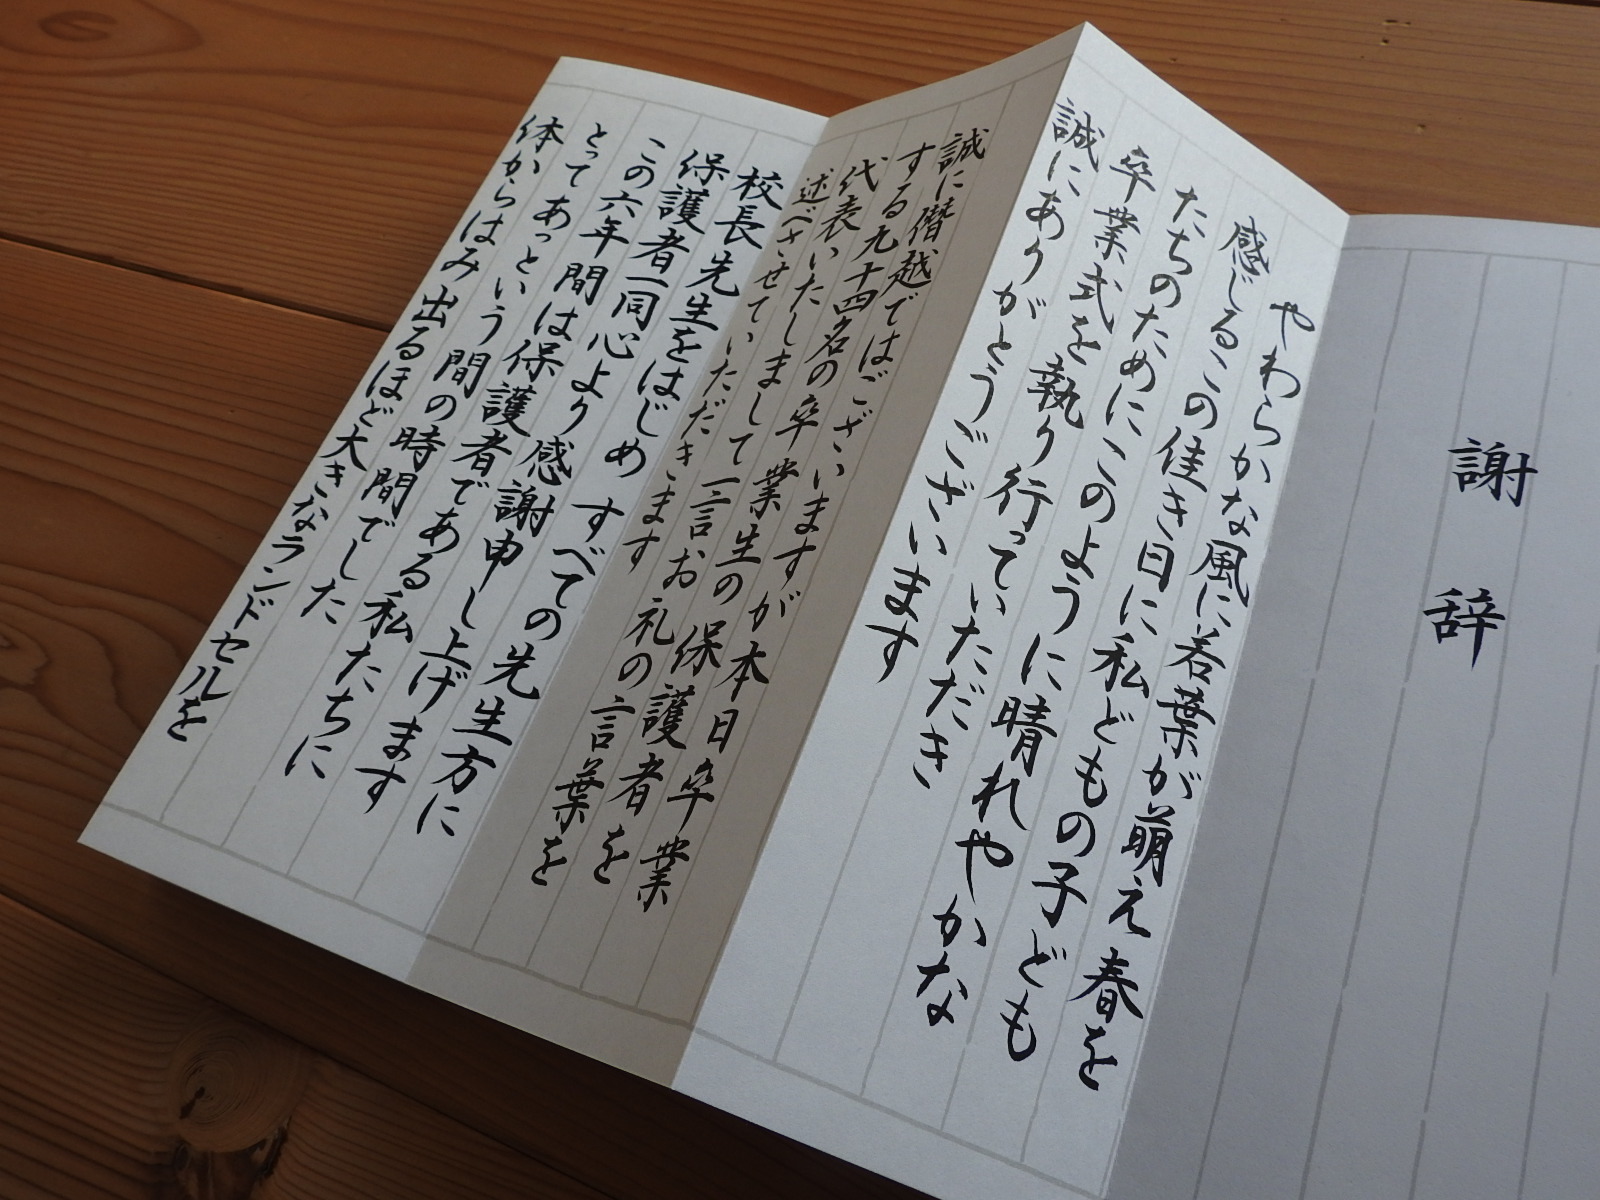 謝辞
やわらかな風に若葉が萌え春を
感じるこの佳き日に私どもの子ども
たちのためにこのように晴れやかな
卒業式を執り行っていただき
誠にありがとうございます
誠に僭越ではございますが本日卒業
する九十四名の卒業生の保護者を
代表いたしまして一言お礼の言葉を
述べさせていただきます
校長先生をはじめすべての先生方に
保護者一同心より感謝申し上げます
この六年間は保護者である私たちに
とってあっという間の時間でした
体からはみ出るほど大きなランドセルを